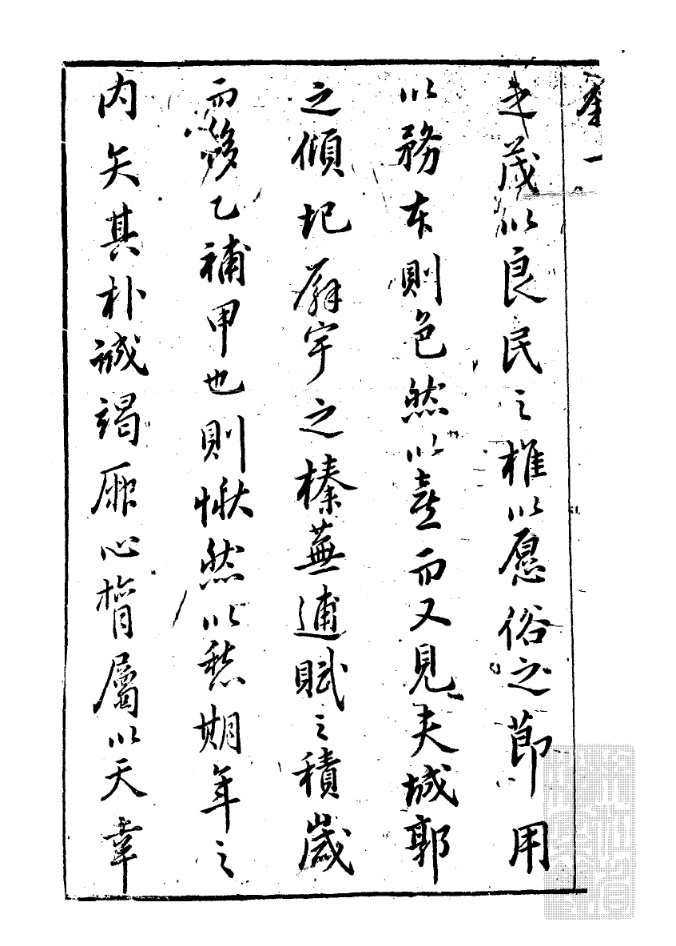 卷一
茂以良民之椎以愿俗之節用
以務本則色然以喜而又見夫城郭
之傾圮廨宇之榛蕪逋賦之積歲
而移乙補甲也則愀然以愁期年之
内矢其朴誠竭厥心膂屬以天幸